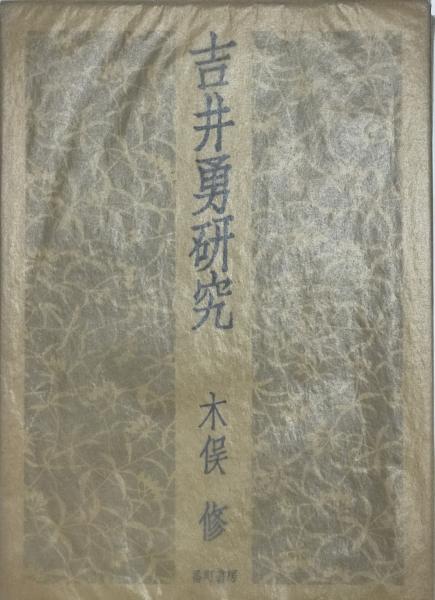 吉井勇研究
木俣 修
番町書房